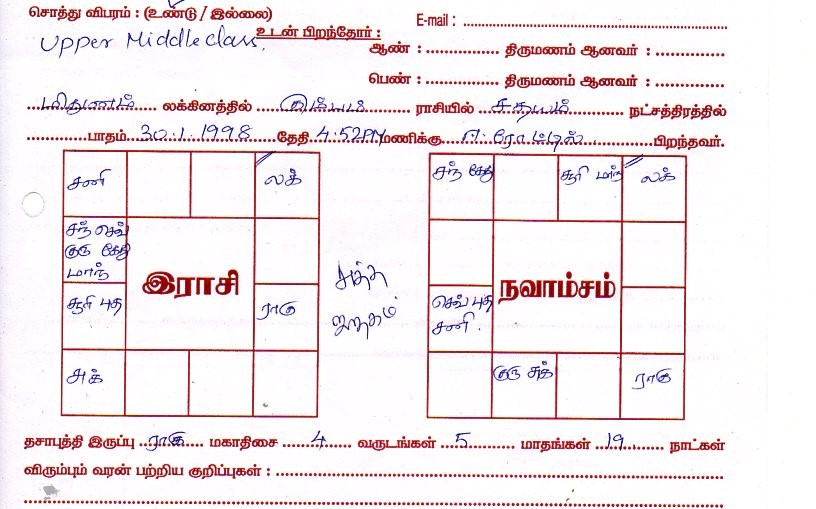 சொத்து விபரம் : (உண்டு / இல்லை)
E-mail :
Upper Middle class.
உடன் பிறந்தோர் :
ஆண் : திருமணம் ஆனவர் :
பெண் : திருமணம் ஆனவர் :
மிதுனம் லக்கினத்தில் கும்பம் ராசியில் சதயம் நட்சத்திரத்தில்
பாதம் 30.1.1998 தேதி 4:52PM மணிக்கு பிறந்தவர்.
சனி லக்
சந் செவ்
குரு கேது
மாந்
இராசி
சூரி புத ராகு
சுக்
சுத்த
ஜாதகம்
சந் கேது சூரி மாந் லக்
நவாம்சம்
செவ் புத
சனி
குரு சுக் ராகு
தசாபுத்தி இருப்பு ராகு மகாதிசை 4 வருடங்கள் 5 மாதங்கள் 19 நாட்கள்
விரும்பும் வரன் பற்றிய குறிப்புகள் :